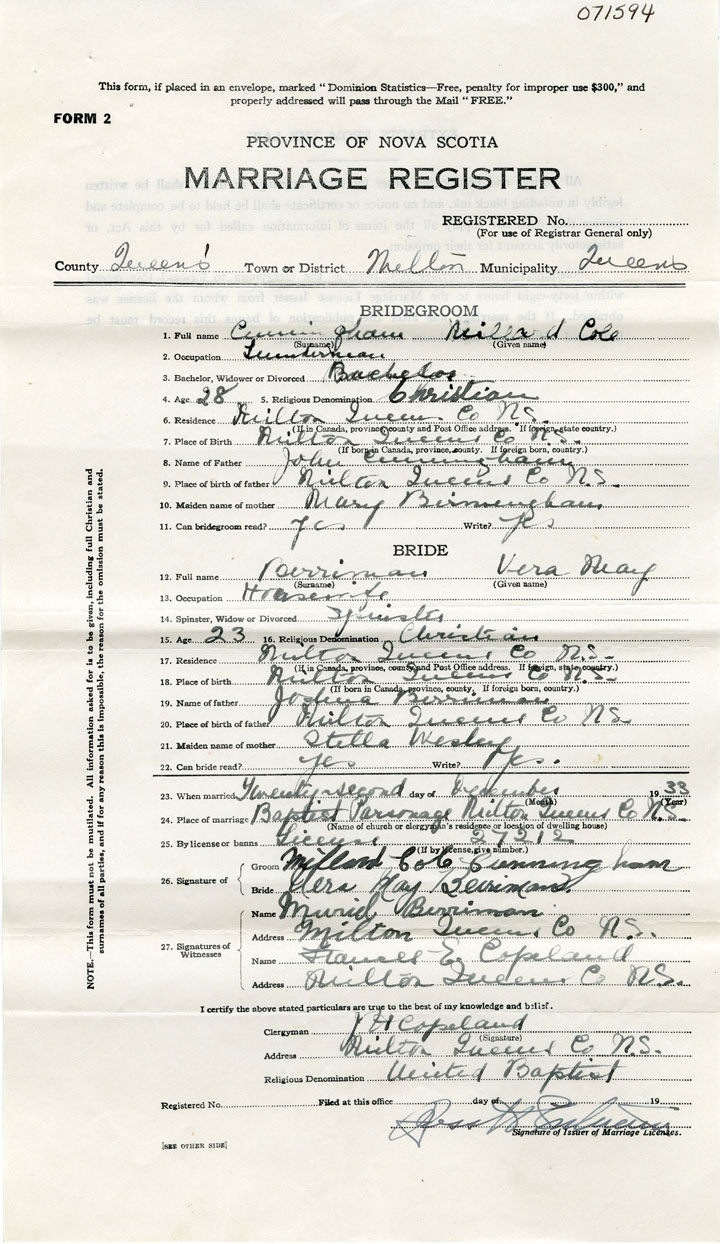 071594
This form, if placed in an envelope, marked "Dominion Statistics—Free, penalty for improper use $300," and
properly addressed will pass through the Mail "FREE."
FORM 2
PROVINCE OF NOVA SCOTIA
MARRIAGE REGISTER
REGISTERED No.
(For use of Registrar General only)
County Queens Town or District Milton Municipality Queens
BRIDEGROOM
1. Full name Cunningham Millard Cole
(Surname) (Given name)
2. Occupation Lumberman
3. Bachelor, Widower or Divorced Bachelor
4. Age 28 5. Religious Denomination Christian
6. Residence Milton Queens Co N.S.
(If in Canada, province, county and Post Office address. If foreign, state country.)
7. Place of Birth Milton Queens Co N.S.
(If born in Canada, province, county. If foreign born, country.)
8. Name of Father John Cunningham
9. Place of birth of father Milton Queens Co N.S.
10. Maiden name of mother Mary Birmingham
11. Can bridegroom read? yes Write? yes
BRIDE
12. Full name Berriman Vera May
(Surname) (Given name)
13. Occupation Housewife
14. Spinster, Widow or Divorced Spinster
15. Age 23 16. Religious Denomination Christian
17. Residence Milton Queens Co N.S.
(If in Canada, province, county and Post Office address. If foreign, state country.)
18. Place of birth Milton Queens Co N.S.
(If born in Canada, province, county. If foreign born, country.)
19. Name of father Joshua Berriman
20. Place of birth of father Milton Queens Co N.S.
21. Maiden name of mother Stella Wesley
22. Can bride read? yes Write? yes.
23. When married Twenty-second day of December 1933
(Month) (Year)
24. Place of marriage Baptist Parsonage Milton Queens Co N.S.
(Name of church or clergyman's residence or location of dwelling house)
25. By license or banns License 27212
(If by license, give number.)
26. Signature of Groom Millard Cole Cunningham
Bride Vera May Berriman
27. Signatures of Witnesses
Name Muriel Berriman
Address Milton Queens Co N.S.
Name Frances E. Copeland
Address Milton Queens Co N.S.
I certify the above stated particulars are true to the best of my knowledge and belief.
Clergyman J H Copeland
(Signature)
Address Milton Queens Co N.S.
Religious Denomination United Baptist
Registered No. Filed at this office day of 19
Signature of Issuer of Marriage Licenses.
[SEE OTHER SIDE]
NOTE.—This form must not be mutilated. All information asked for is to be given, including full Christian and
surnames of all parties, and if for any reason this is impossible, the reason for the omission must be stated.